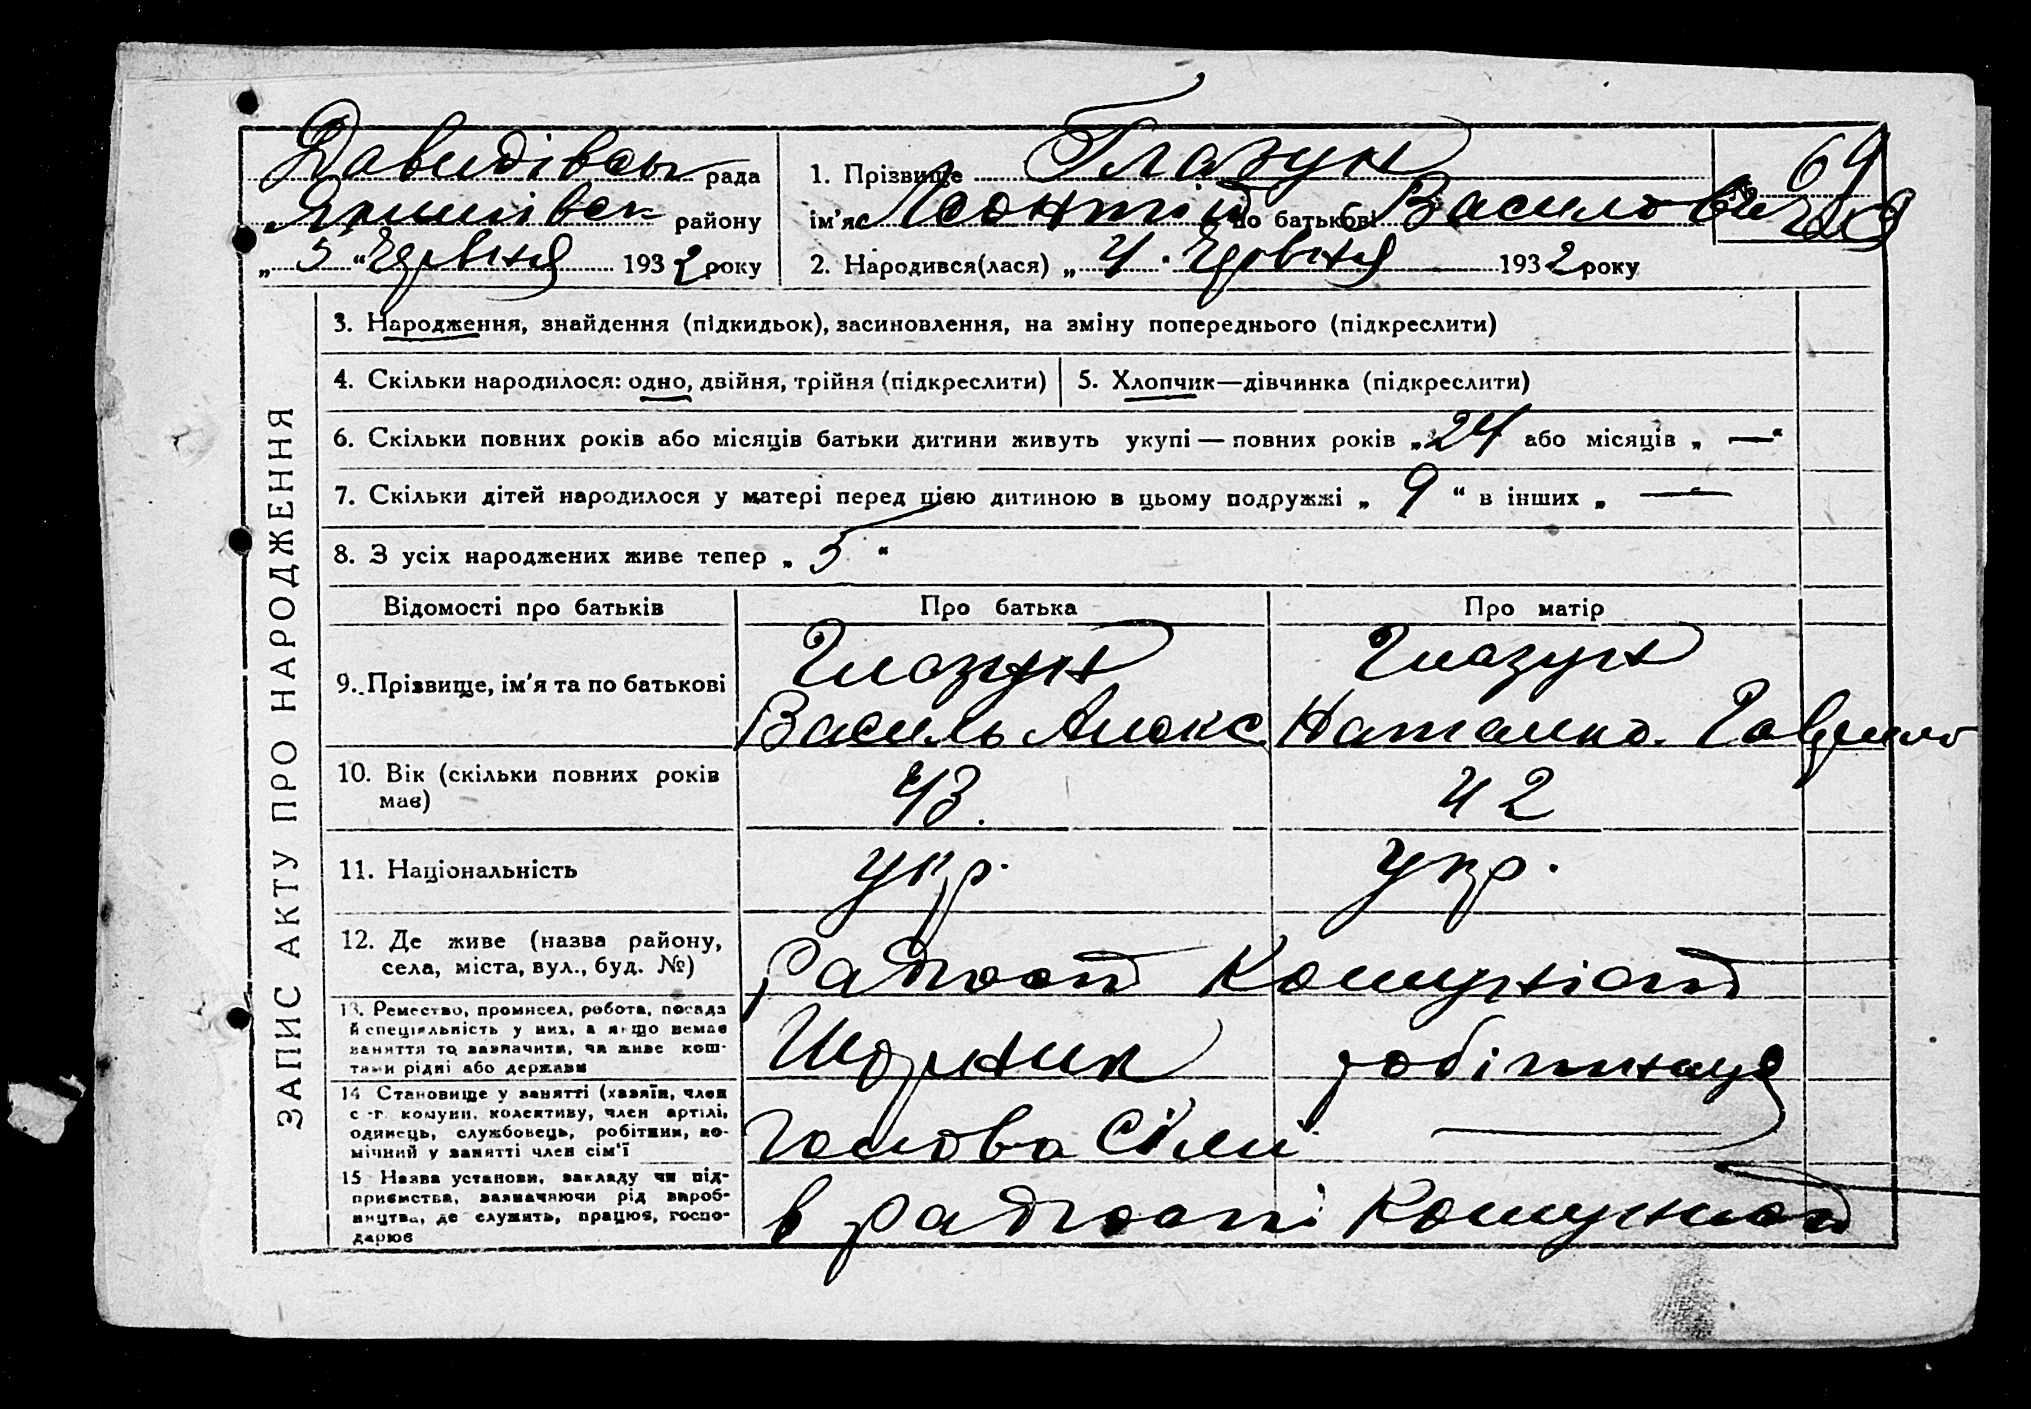 Давидівськ рада
району
„ 5 “ Червня 1932 року
1. Прізвище Глазун
ім'я Леонтій по батькові Василович
№ 69
2. Народився(лася) „ 4 “ Червня 1932 року
ЗАПИС АКТУ ПРО НАРОДЖЕННЯ
3. Народження, знайдення (підкидьок), засиновлення, на зміну попереднього (підкреслити)
4. Скільки народилося: одно, двійня, трійня (підкреслити)
5. Хлопчик—дівчинка (підкреслити)
6. Скільки повних років або місяців батьки дитини живуть укупі — повних років „ 24 або місяців „ — “
7. Скільки дітей народилося у матері перед цією дитиною в цьому подружжі „ 9 “ в інших „ —
8. З усіх народжених живе тепер „ 5 “
Відомості про батьків
Про батька
Про матір
9. Прізвище, ім'я та по батькові
Глазун
Василь Алекс
Глазун
Наталка Гаврило
10. Вік (скільки повних років має)
43.
42
11. Національність
укр.
укр.
12. Де живе (назва району,
села, міста, вул., буд. №)
радгосп Комуніст
13. Ремество, промисел, робота, посада
й спеціяльність у них, а якщо немає
заняття то зазначити, чи живе кош-
тами рідні або держави
Шорник
робітниця
14 Становище у занятті (хазяїн, член
с.-г. комуни, колективу, член артілі,
одинець, службовець, робітник, по-
мічний у занятті член сім'ї
Голова Сімі
—
15 Назва установи, закладу чи під-
приємства, зазначаючи рід вироб-
ництва, де служить, працює, госпо-
дарює
в радгоспі Комунист